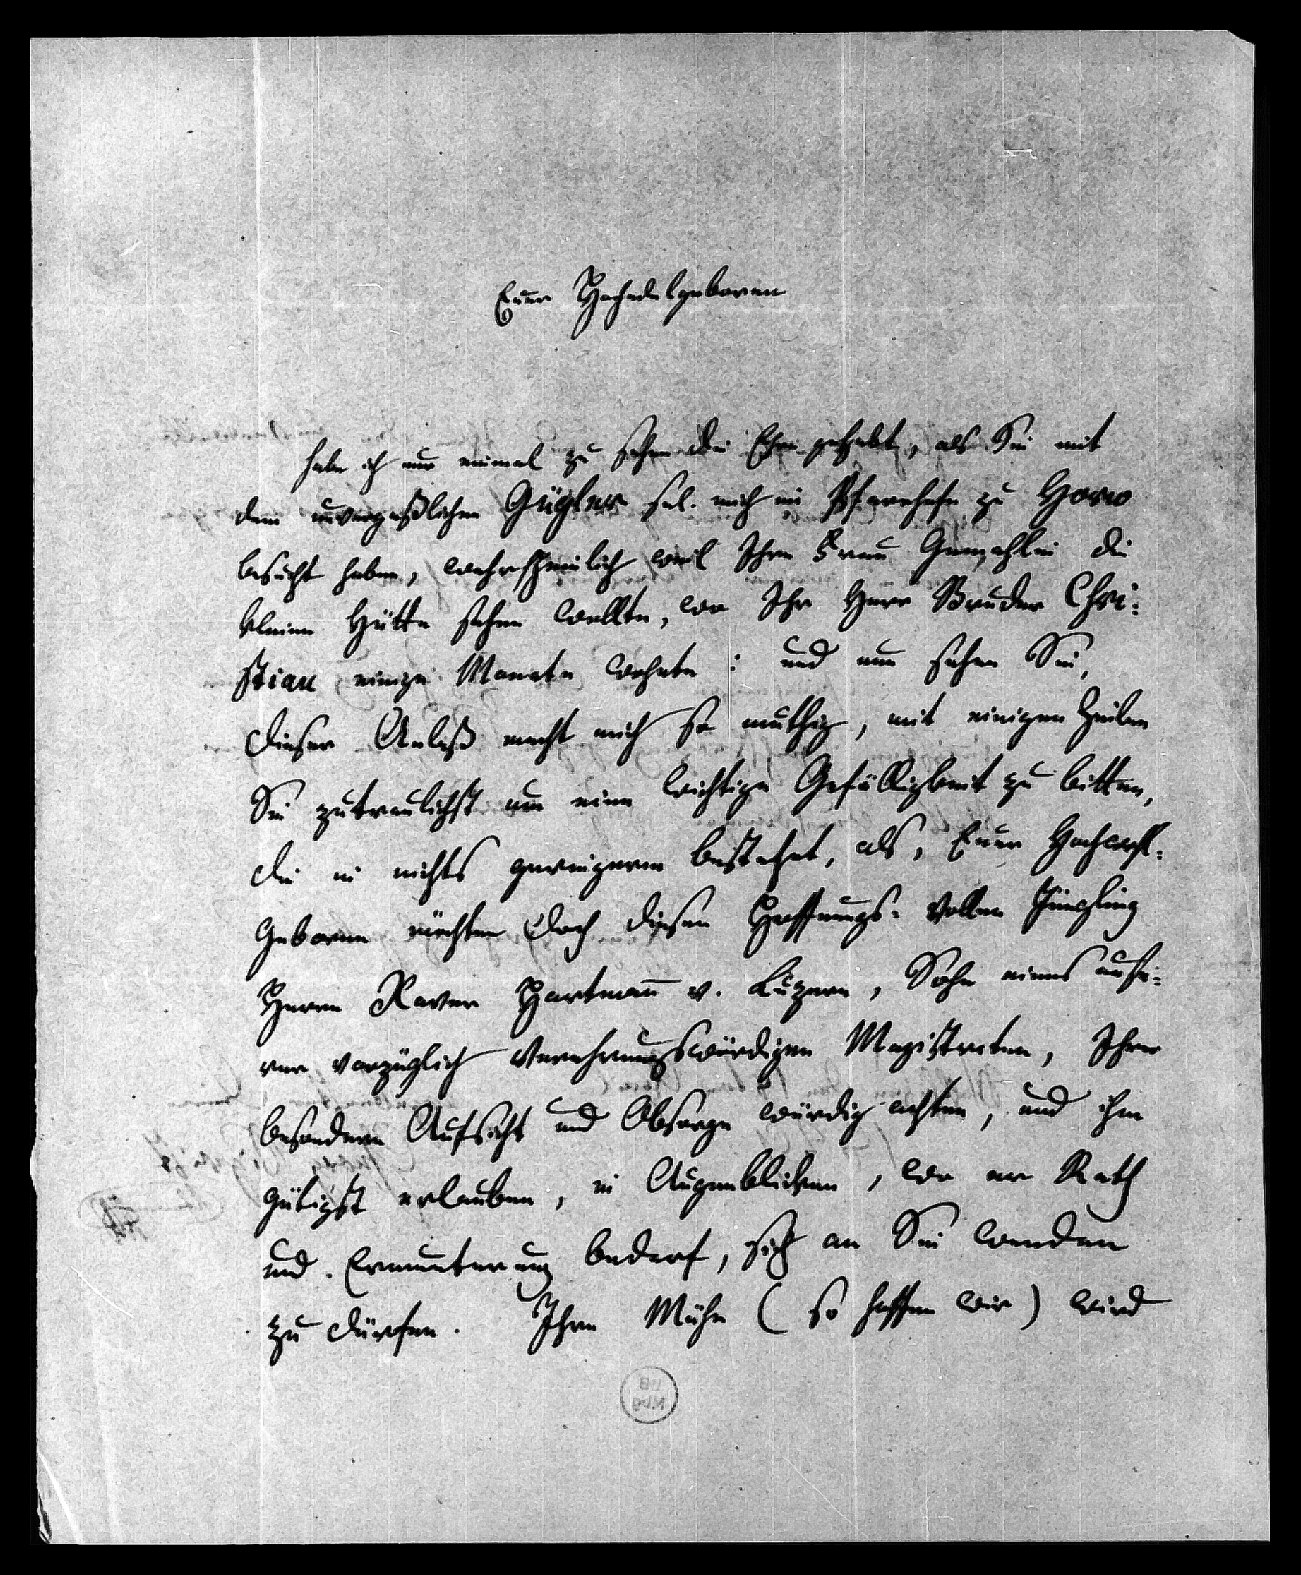 Euer Hochedelgeboren
habe ich nur einmal zu sehen die Ehre gehabt, als Sie mit
dem unvergeßlichen Gügler sel. mich im Pfarrhofe zu Horw
besucht haben, wahrscheinlich weil Ihre Frau Gemahlin die
kleine Hütte sehen wollte, wo Ihr Herr Bruder Chri-
stian einige Monate wohnte: und nun sehen Sie,
dieser Anlaß macht mich so muthig, mit einigen Zeilen
Sie zutraulichst um eine wichtige Gefälligkeit zu bitten,
die in nichts geringerm bestehet, als, Euer Hochwohl-
Geboren möchten doch diesen Hoffnungs-vollen Jüngling
Herrn Xaver Hartmann v. Luzern, Sohn eines unse-
rer vorzüglich Verehrungswürdigen Magistraten, Ihrer
besondern Aufsicht und Obsorge würdig achten, und ihm
gütigst erlauben, in Augenblicken, wo er Rath
und Ermunterung bedarf, sich an Sie wenden
zu dürfen. Ihre Mühe (so hoffen wir) wird